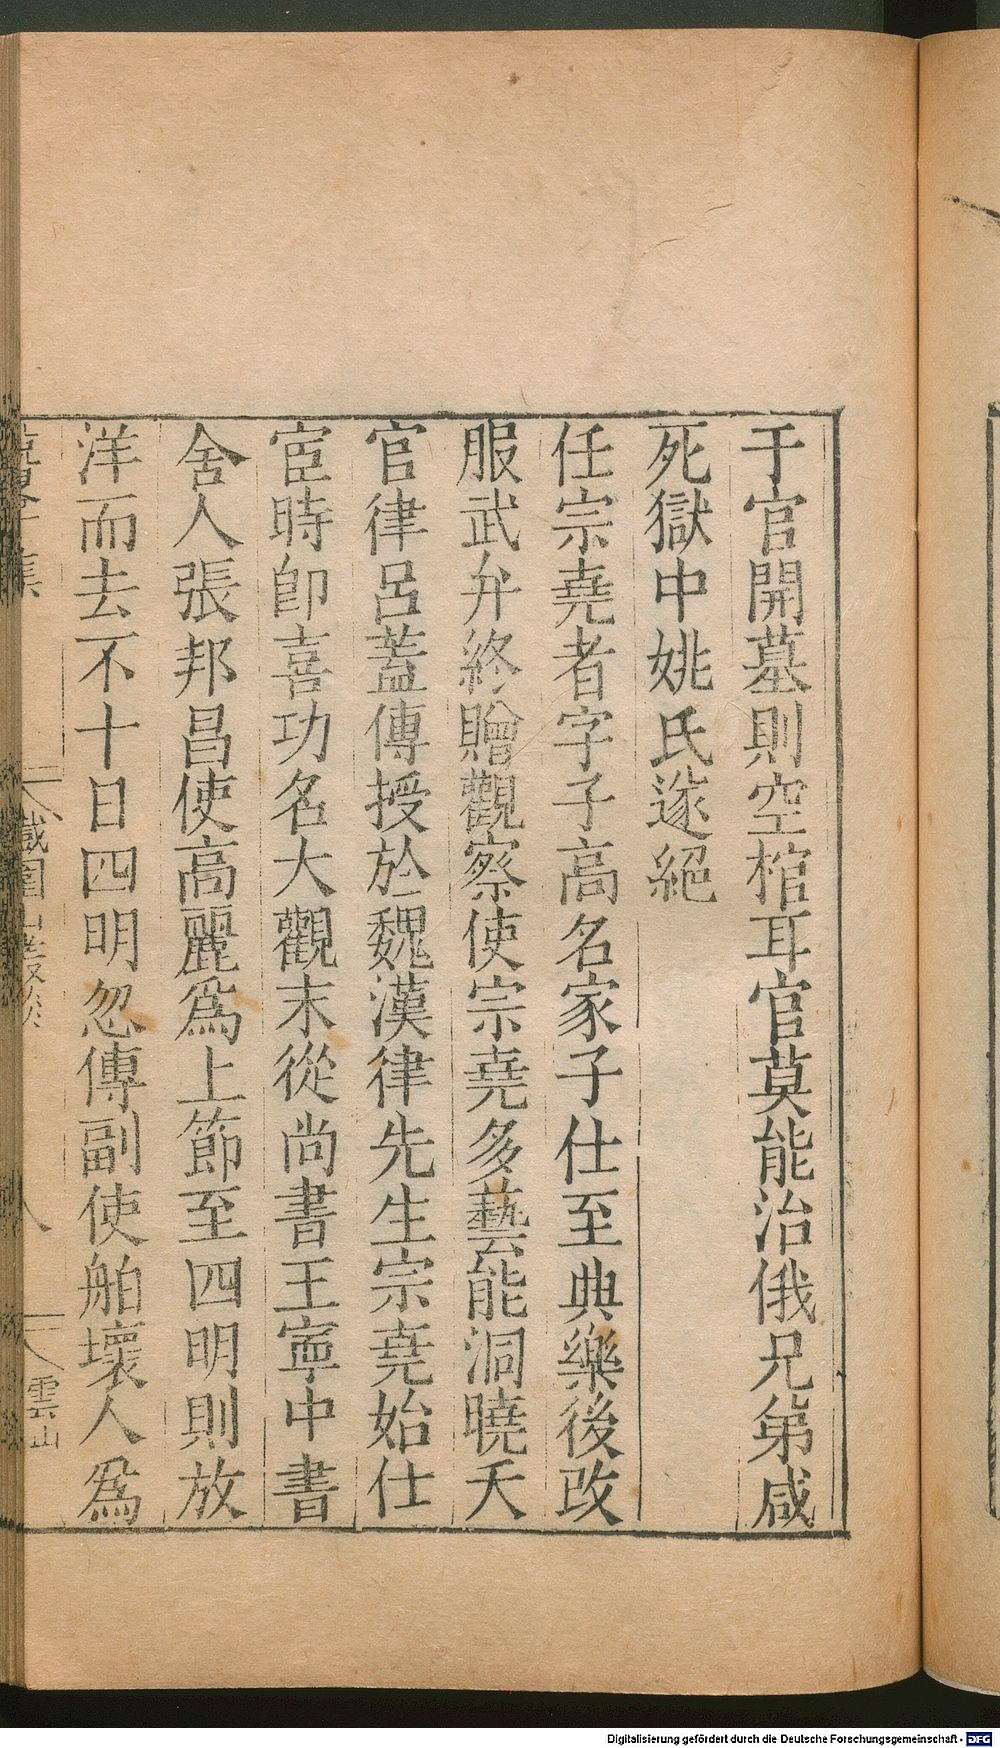 于官開墓則空棺耳官莫能治俄兄弟咸
死獄中姚氏遂絕
任宗堯者字子高名家子仕至典樂後改
服武弁終贈觀察使宗堯多藝能洞曉天
官律呂蓋傳授於魏漢律先生宗堯始仕
宦時卽喜功名大觀末從尚書王寧中書
舍人張邦昌使高麗爲上節至四明則放
洋而去不十日四明忽傳副使舶壞人爲
鐵圍山叢談
八
雲山
Digitalisierung gefördert durch die Deutsche Forschungsgemeinschaft - DFG